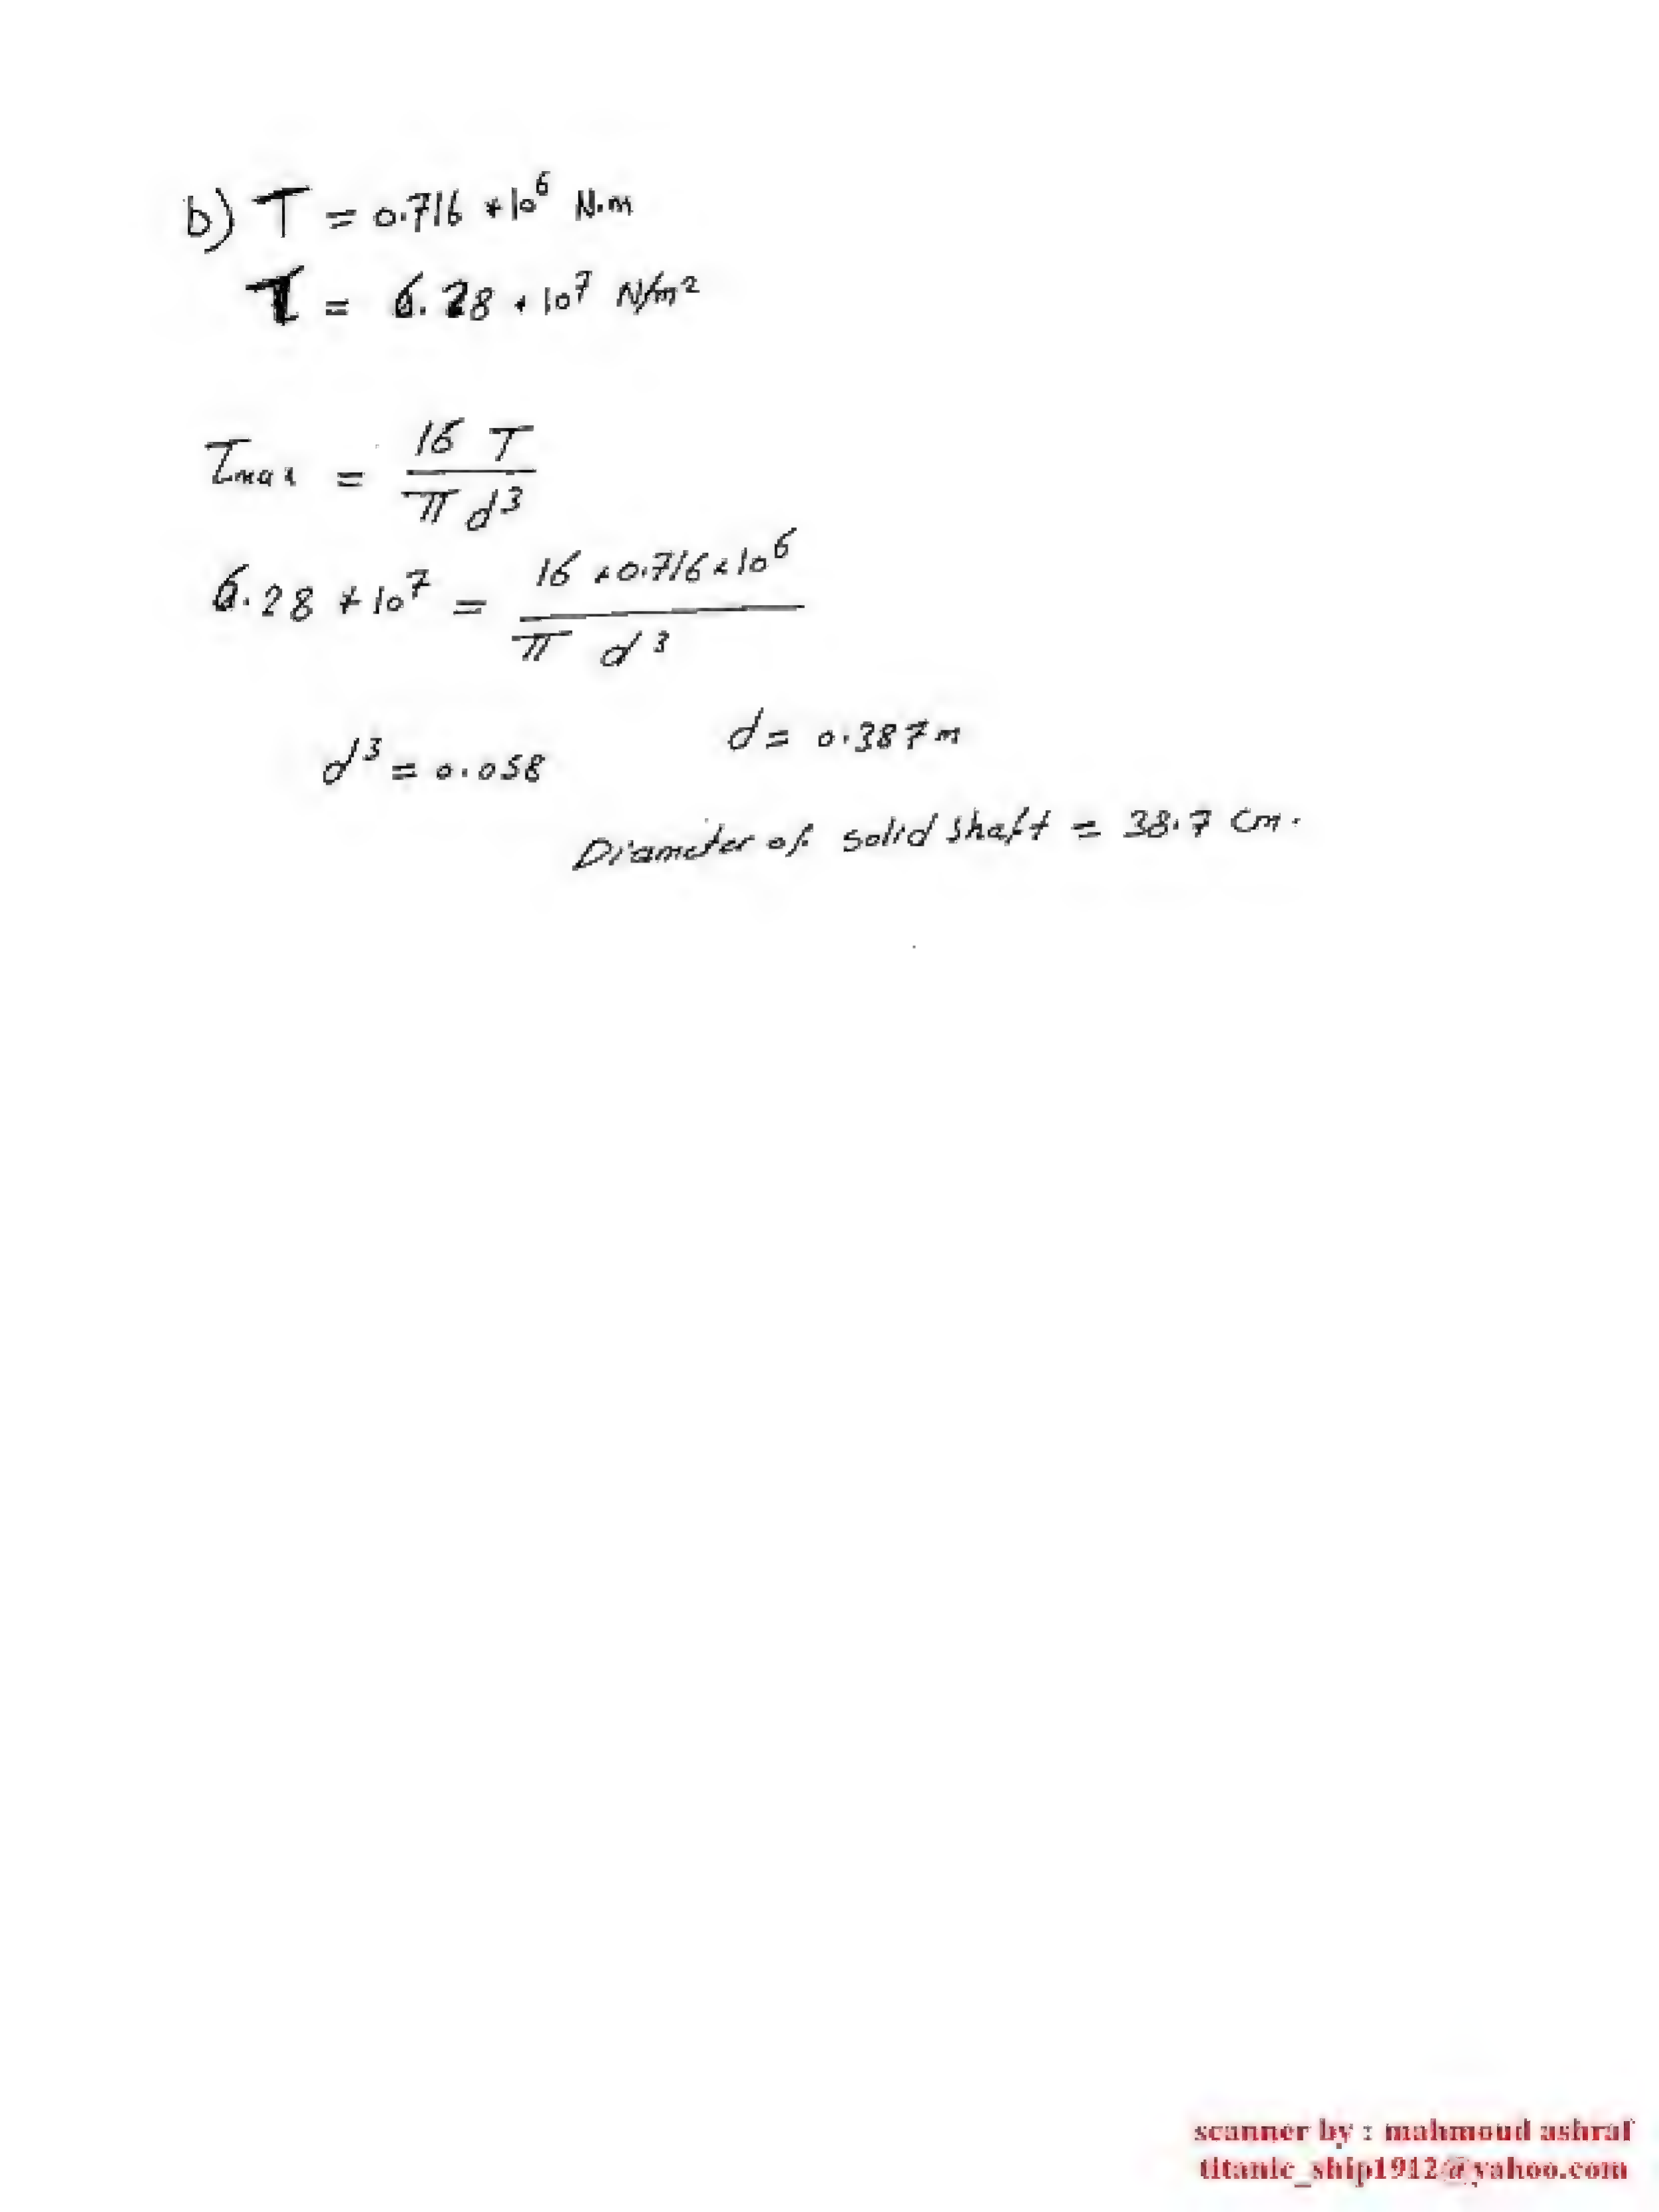 b) T = 0.716 * 10^6 N.m
τ = 6.28 * 10^7 N/m²
τmax = 16 T / π d³
6.28 * 10^7 = 16 * 0.716 * 10^6 / π d³
d³ = 0.058 d = 0.387 m
Diameter of solid shaft = 38.7 cm.
scanner by : mahmoud ashraf
titanic_ship1912@yahoo.com